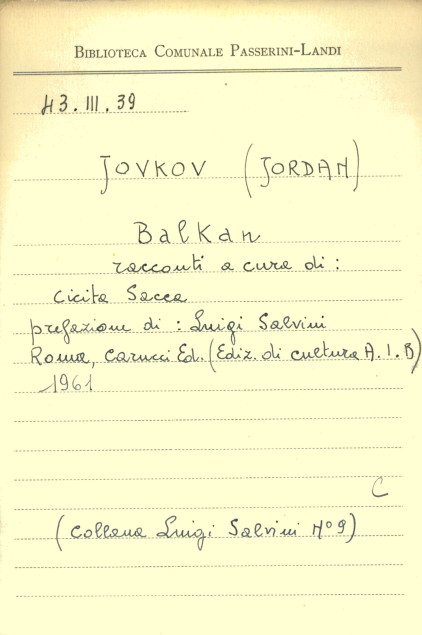 BIBLIOTECA COMUNALE PASSERINI-LANDI
H3.III.39
JOVKOV (JORDAN)
Balkan
racconti a cura di :
Cicita Sacca
prefazione di : Luigi Salvini
Roma, Carucci Ed. (Ediz. di cultura A.I.B)
1961
C
(Collana Luigi Salvini N° 9)